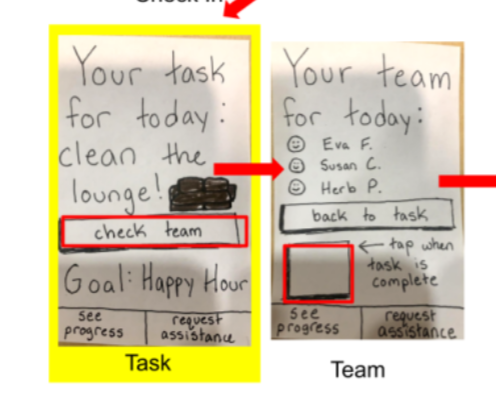 Check in
Your task
for today:
clean the
lounge!
check team
Goal: Happy Hour
see
progress
request
assistance
Task
Your team
for today:
Eva F.
Susan C.
Herb P.
back to task
← tap when
task is
complete
see
progress
request
assistance
Team